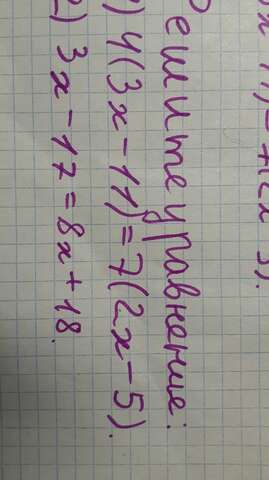 Решите уравнение:
1) 4(3x-11)=7(2x-5).
2) 3x-17=8x+18.